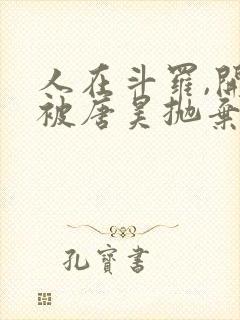 人在斗羅,開
被唐昊抛棄
孔寶書